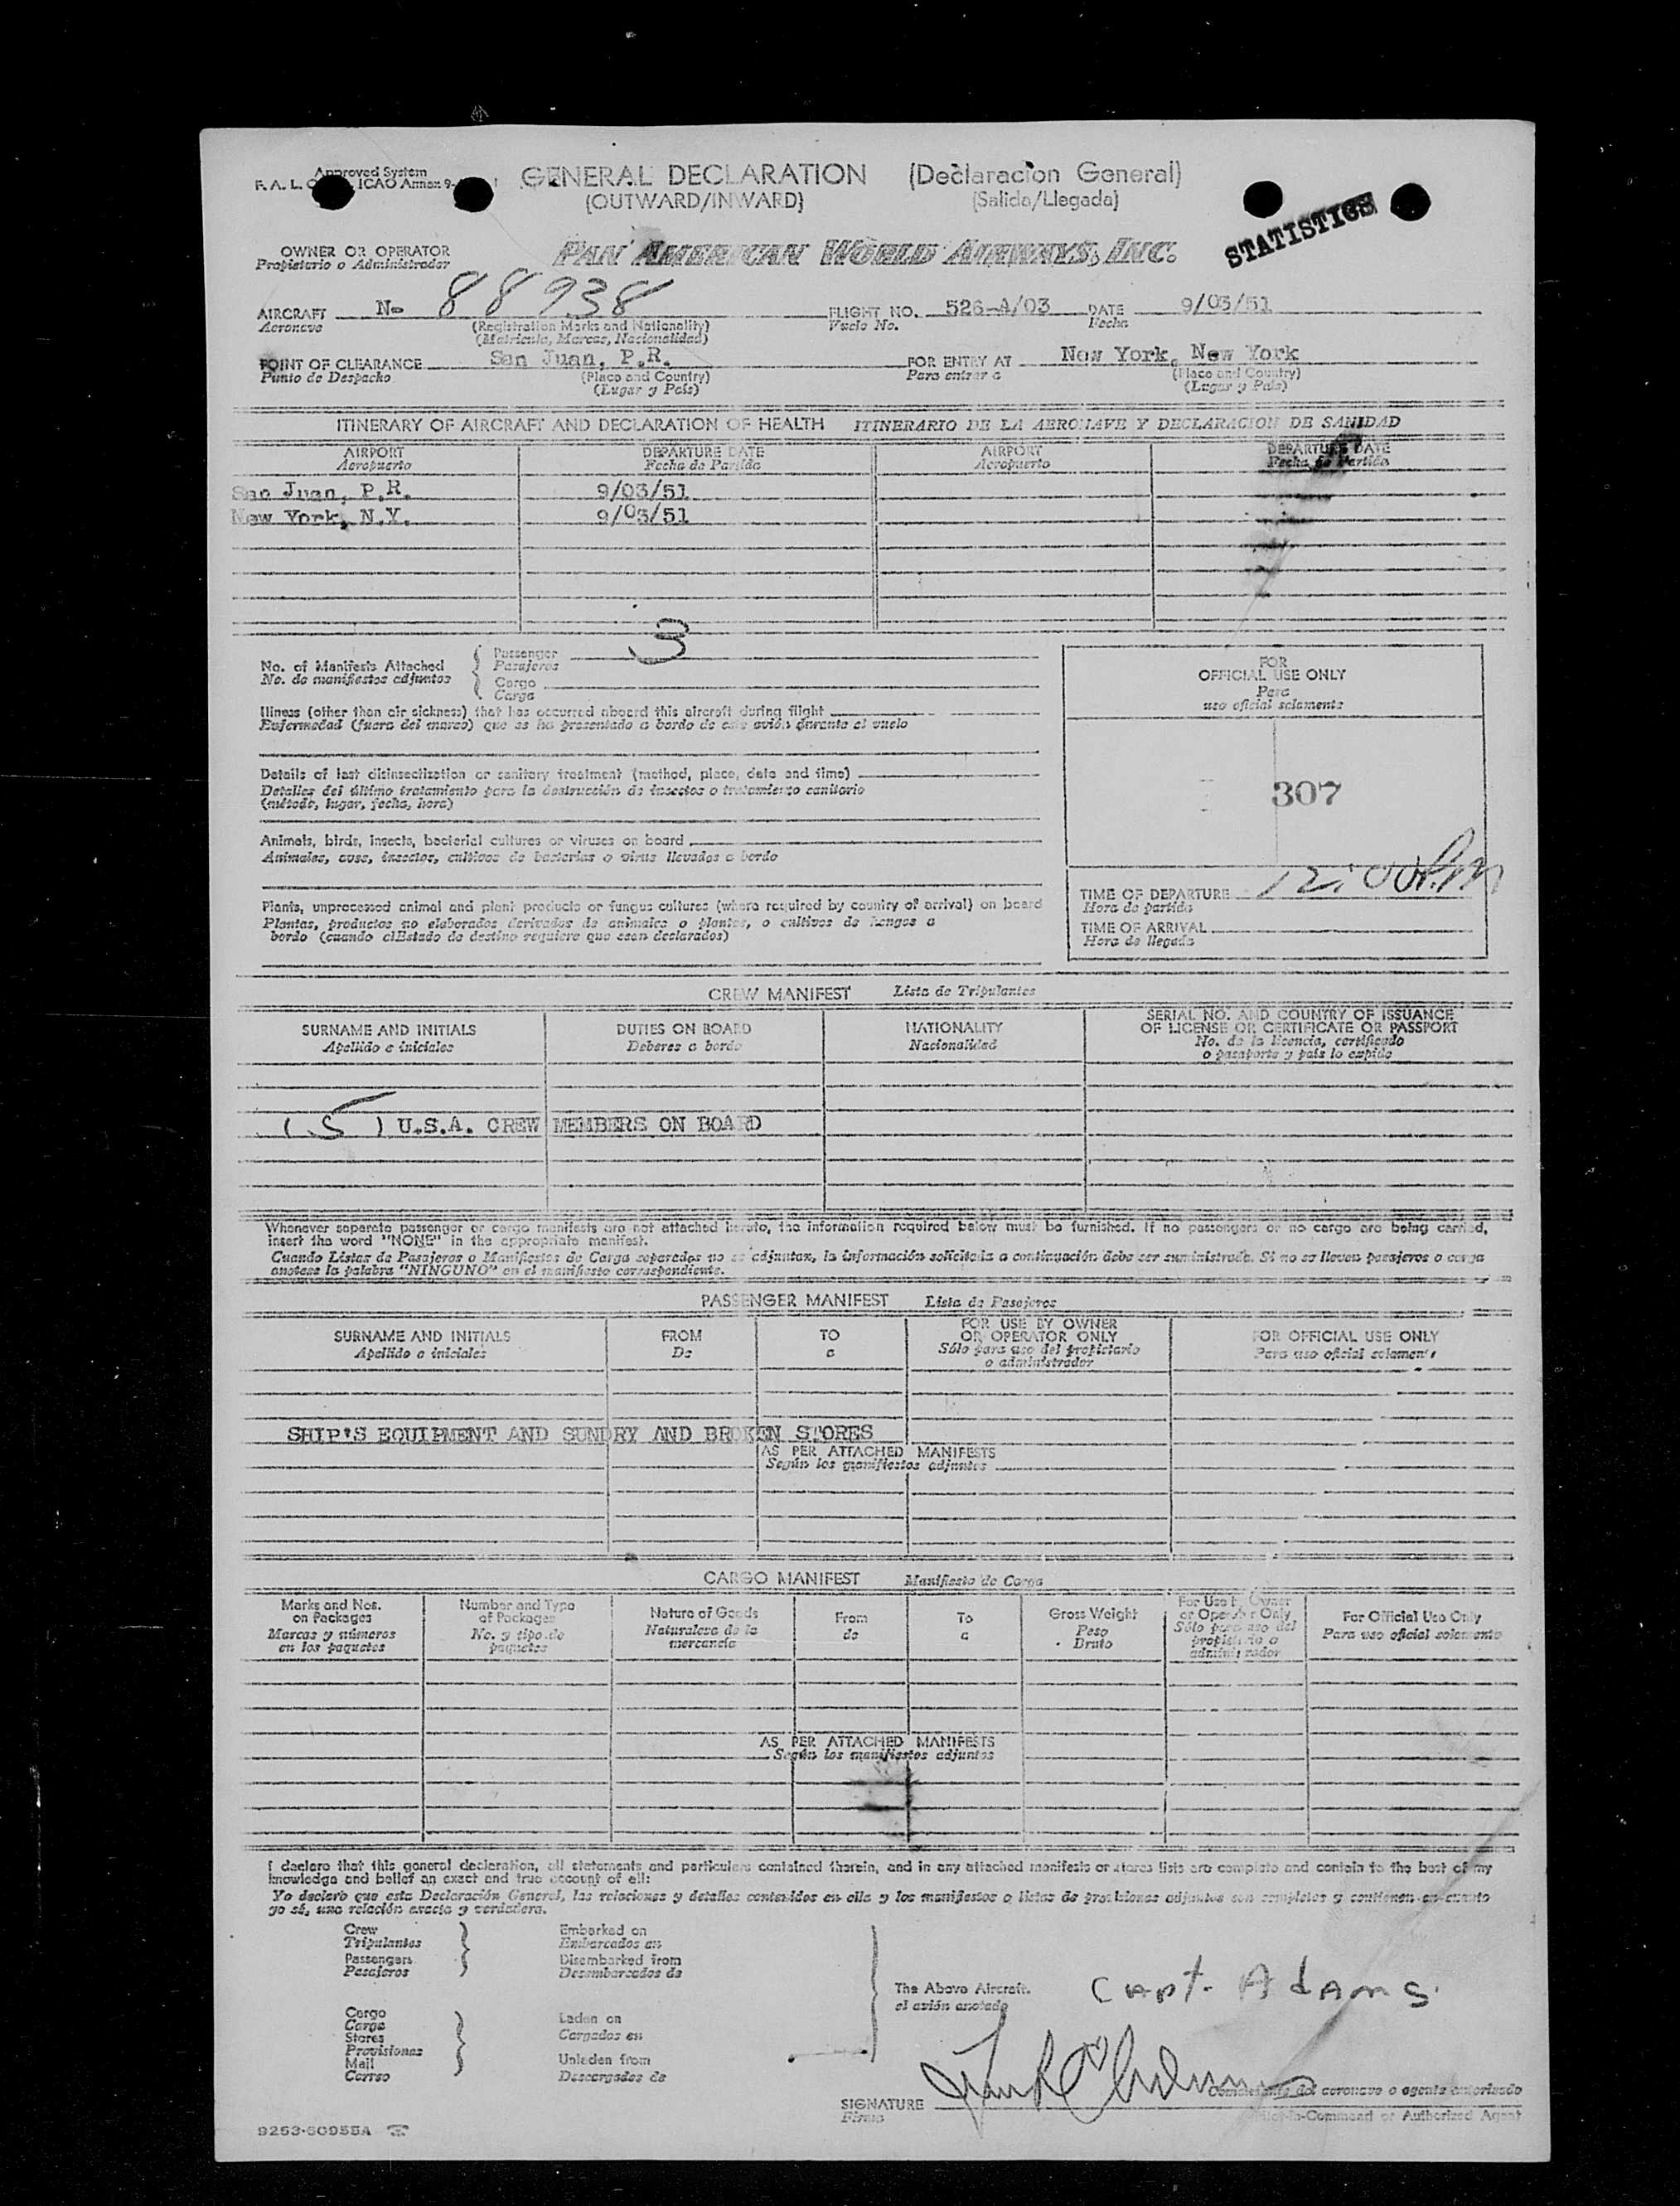 Approved System
F. A. L. ICAO Annex 9-
GENERAL DECLARATION (Declaracion General)
(OUTWARD/INWARD) (Salida/Llegada)
STATISTICS
OWNER OR OPERATOR PAN AMERICAN WORLD AIRWAYS, INC.
Propietario o Administrador
AIRCRAFT N- 88938 FLIGHT NO. 526-A/03 DATE 9/03/51
Aeronave (Registration Marks and Nationality) Vuelo No. Fecha
(Matricula, Marcas, Nacionalidad)
POINT OF CLEARANCE San Juan, P.R. FOR ENTRY AT New York, New York
Punto de Despacho (Place and Country) Para entrar a (Place and Country)
(Lugar y País) (Lugar y País)
ITINERARY OF AIRCRAFT AND DECLARATION OF HEALTH ITINERARIO DE LA AERONAVE Y DECLARACION DE SANIDAD
AIRPORT DEPARTURE DATE AIRPORT DEPARTURE DATE
Aeropuerto Fecha de Partida Aeropuerto Fecha de Partida
San Juan, P.R. 9/03/51
New York, N.Y. 9/03/51
No. of Manifests Attached { Passenger 3
No. de manifiestos adjuntos Pasajeros
Cargo
Carga
Illness (other than air sickness) that has occurred aboard this aircraft during flight
Enfermedad (fuera del mareo) que se ha presentado a bordo de este avión durante el vuelo
Details of last disinsectization or sanitary treatment (method, place, date and time)
Detalles del último tratamiento para la destrucción de insectos o tratamiento sanitario
(método, lugar, fecha, hora)
Animals, birds, insects, bacterial cultures or viruses on board
Animales, aves, insectos, cultivos de bacterias o virus llevados a bordo
Plants, unprocessed animal and plant products or fungus cultures (where required by country of arrival) on board
Plantas, productos no elaborados derivados de animales o plantas, o cultivos de hongos a
bordo (cuando elEstado de destino requiere que sean declarados)
FOR
OFFICIAL USE ONLY
Para
uso oficial solamente
307
TIME OF DEPARTURE 12:00P.M
Hora de partida
TIME OF ARRIVAL
Hora de llegada
CREW MANIFEST Lista de Tripulantes
SURNAME AND INITIALS DUTIES ON BOARD NATIONALITY SERIAL NO. AND COUNTRY OF ISSUANCE
OF LICENSE OR CERTIFICATE OR PASSPORT
Apellido e iniciales Deberes a bordo Nacionalidad No. de la licencia, certificado
o pasaporte y país lo expide
(5) U.S.A. CREW MEMBERS ON BOARD
Whenever separate passenger or cargo manifests are not attached hereto, the information required below must be furnished. If no passengers or no cargo are being carried,
insert the word "NONE" in the appropriate manifest.
Cuando Listas de Pasajeros o Manifiestos de Carga separados no se adjuntan, la información solicitada a continuación debe ser suministrada. Si no se llevan pasajeros o carga
anotese la palabra "NINGUNO" en el manifiesto correspondiente.
PASSENGER MANIFEST Lista de Pasajeros
SURNAME AND INITIALS FROM TO FOR USE BY OWNER FOR OFFICIAL USE ONLY
OR OPERATOR ONLY
Apellido e iniciales De a Sólo para uso del propietario Para uso oficial solamente
o administrador
SHIP'S EQUIPMENT AND SUNDRY AND BROKEN STORES
AS PER ATTACHED MANIFESTS
Según los manifiestos adjuntos
CARGO MANIFEST Manifiesto de Carga
Marks and Nos. Number and Type Nature of Goods From To Gross Weight For Use by Owner For Official Use Only
on Packages of Packages or Operator Only
Marcas y números No. y tipo de Naturaleza de la de a Peso Sólo para uso del Para uso oficial solamente
en los paquetes paquetes mercancía Bruto propietario o
administrador
AS PER ATTACHED MANIFESTS
Según los manifiestos adjuntos
I declare that this general declaration, all statements and particulars contained therein, and in any attached manifests or stores lists are complete and contain to the best of my
knowledge and belief an exact and true account of all:
Yo declaro que esta Declaración General, las relaciones y detalles contenidos en ella y los manifiestos o listas de provisiones adjuntos son completos y contienen en cuanto
yo sé, una relación exacta y verdadera.
Crew Embarked on
Tripulantes Embarcados en
Passengers Disembarked from
Pasajeros Desembarcados de
The Above Aircraft. Capt. Adams.
el avión anotado
Cargo Laden on
Carga Cargados en
Stores
Provisiones
Mail Unladen from
Correo Descargados de
SIGNATURE Comandante del aeronave o agente autorizado
Firma Pilot-in-Command or Authorized Agent
9253-60955A